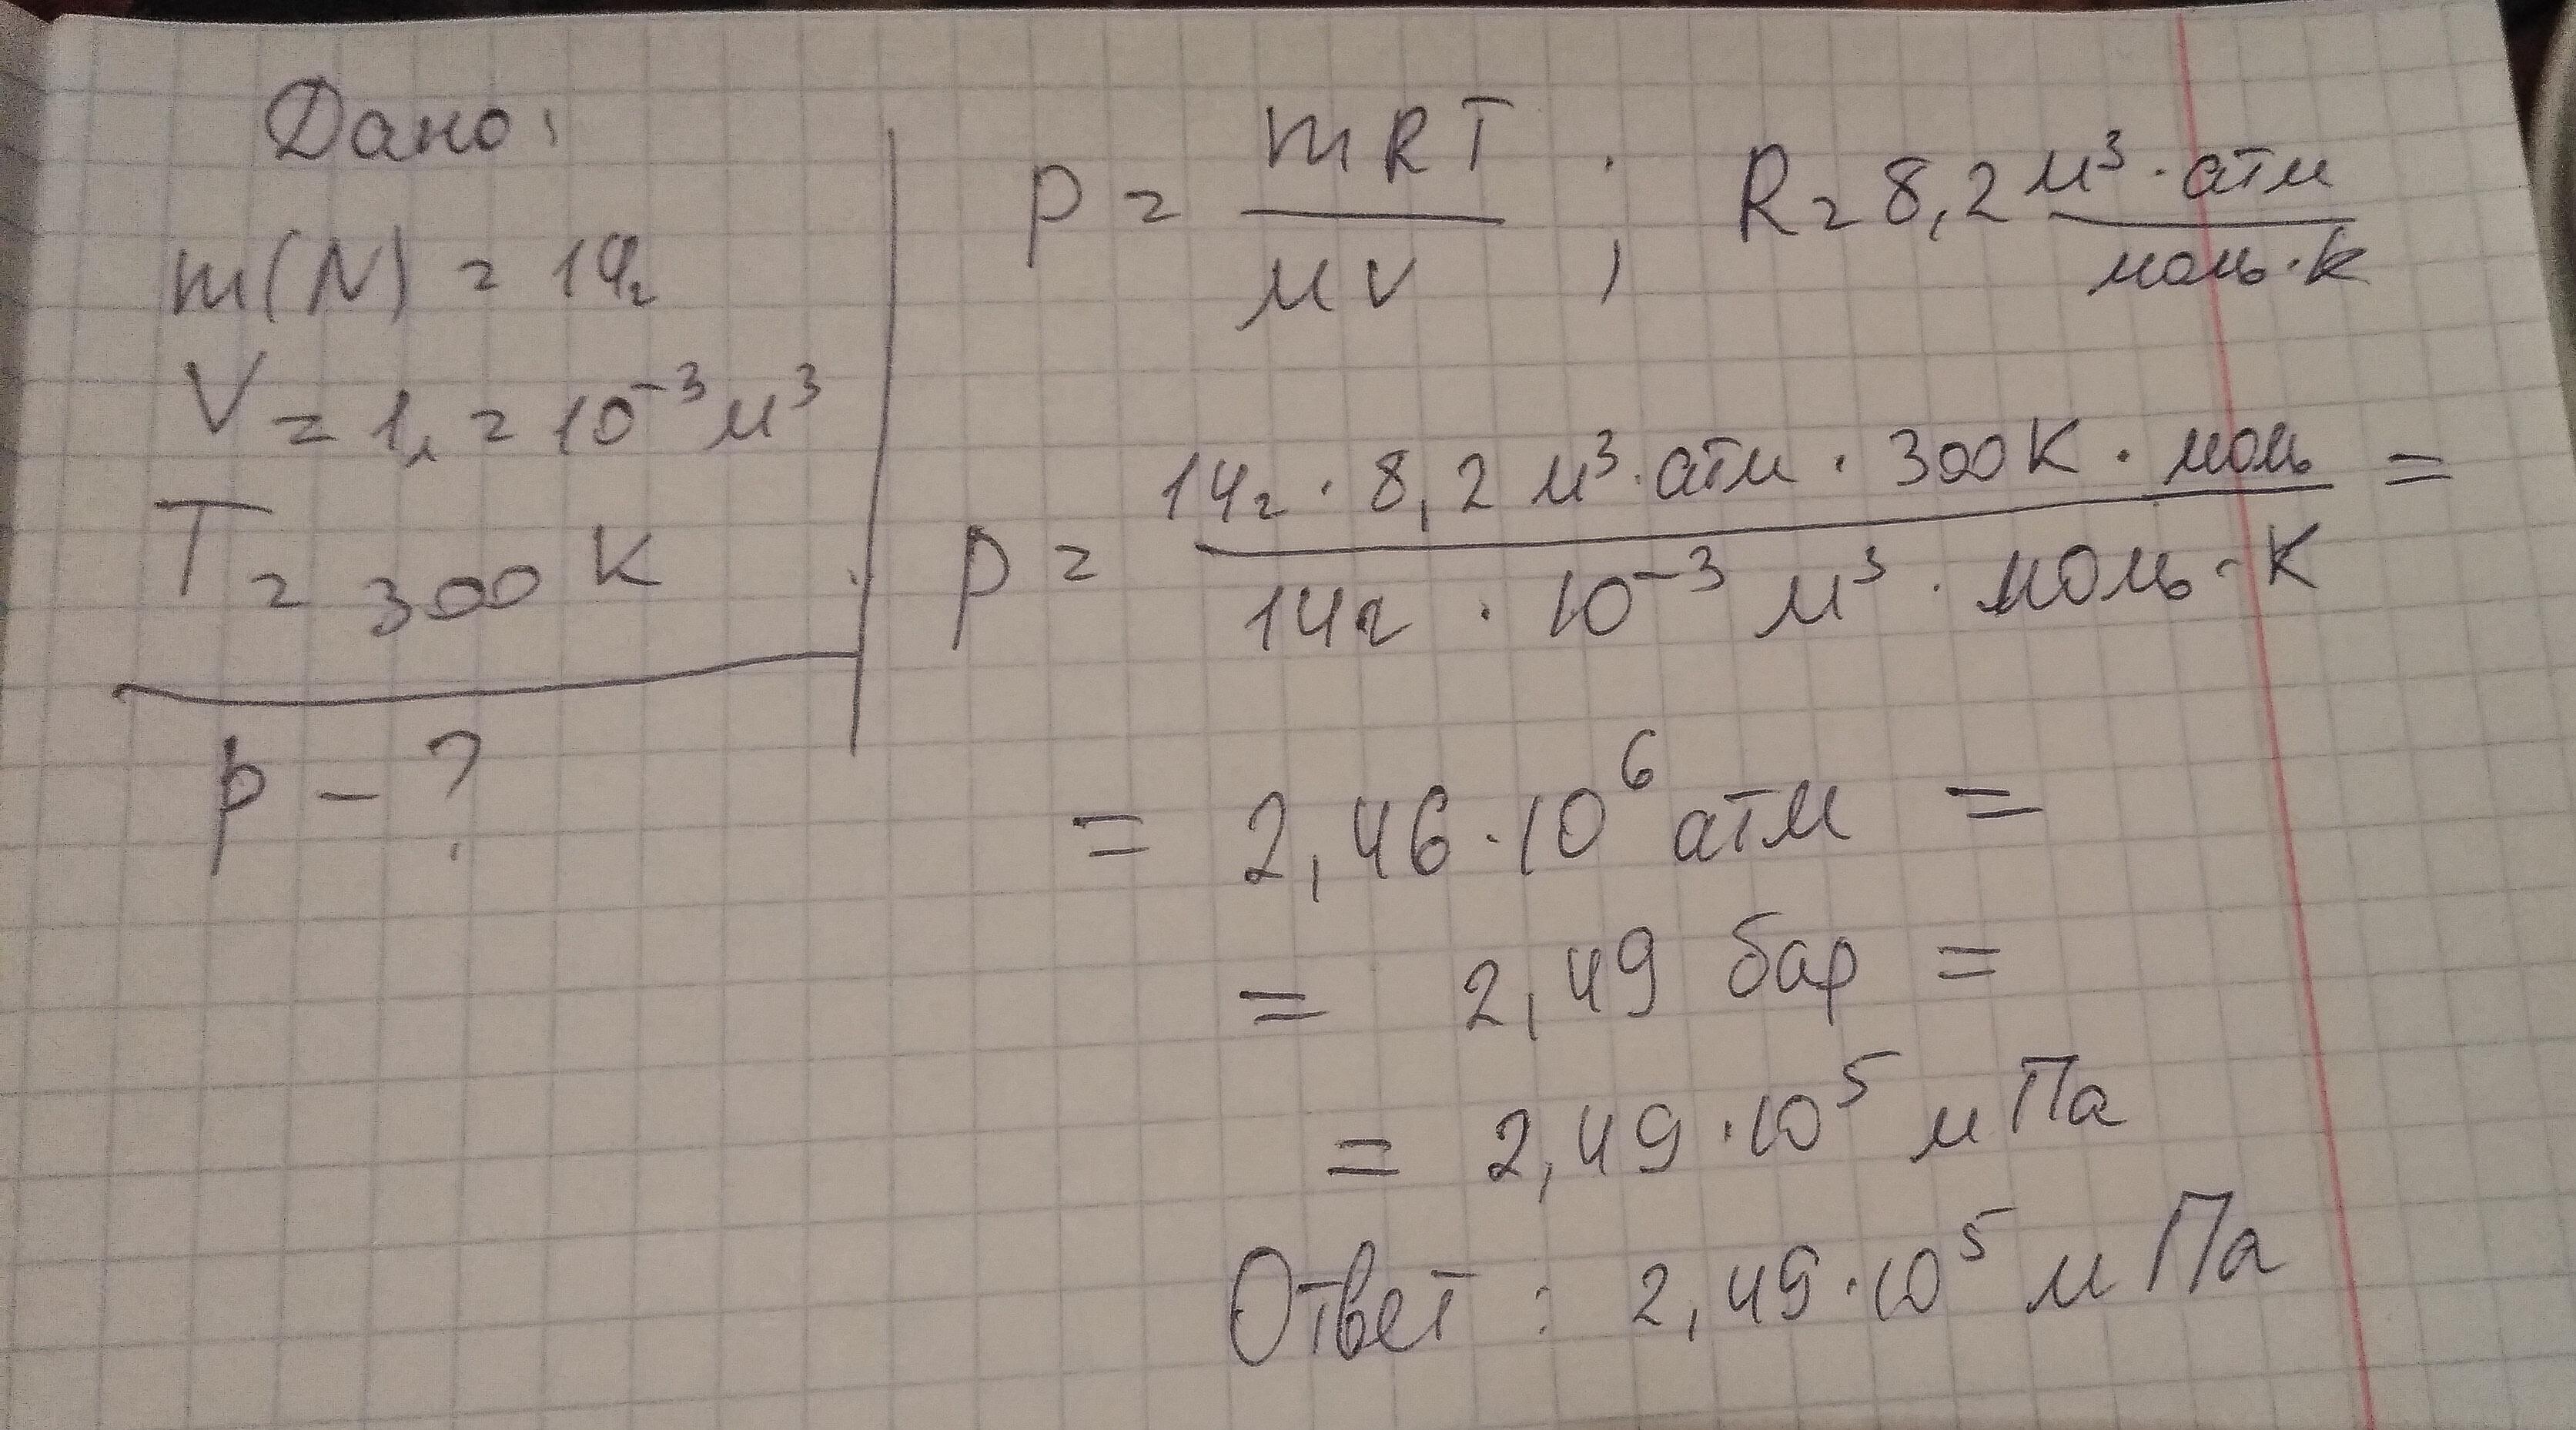 Дано:
m(N) = 14г
V = 1л = 10⁻³ м³
T = 300 K
p - ?
p = mRT / μV ; R = 8,2 м³·атм / моль·K
p = 14г · 8,2 м³·атм · 300K · моль / 14г · 10⁻³ м³ · моль·K =
= 2,46·10⁶ атм =
= 2,49 бар =
= 2,49·10⁵ мПа
Ответ : 2,49·10⁵ мПа